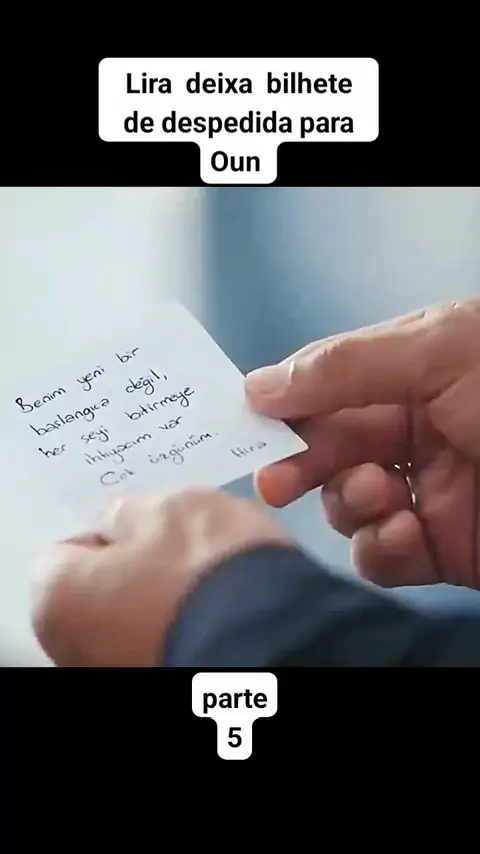 Lira deixa bilhete
de despedida para
Oun
Benim yeni bir
başlangıca değil,
her şeyi bitirmeye
ihtiyacım var
Çok üzgünüm.
Hira
parte
5